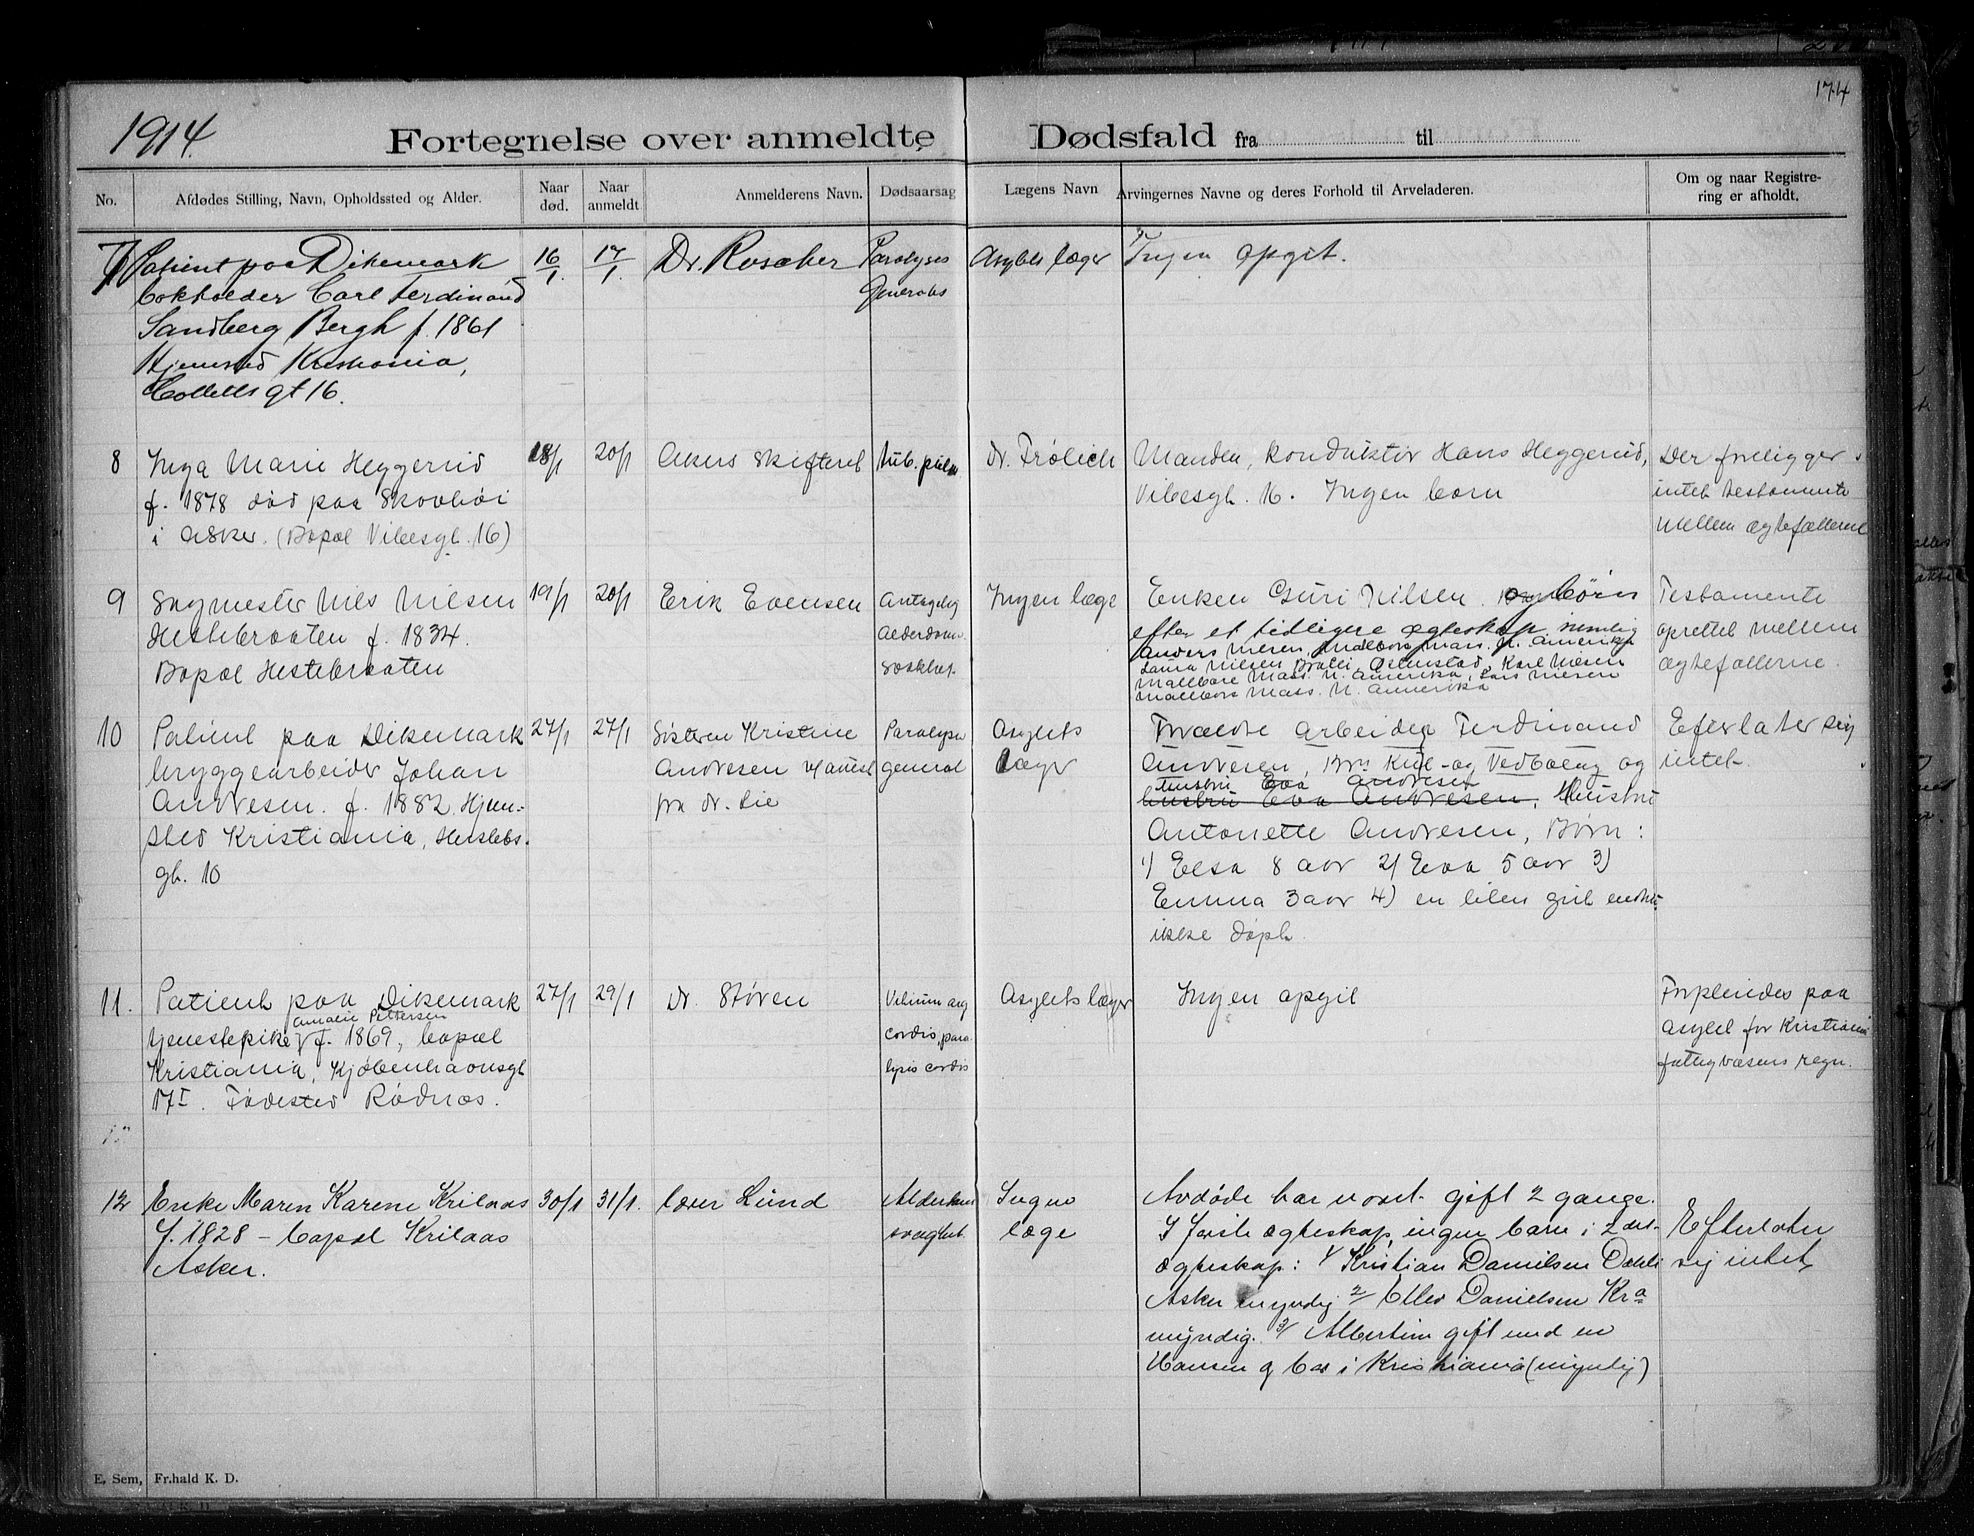 174
1914.
Fortegnelse over anmeldte Dødsfald fra til
No.
Afdødes Stilling, Navn, Opholdssted og Alder.
Naar død.
Naar anmeldt
Anmelderens Navn.
Dødsaarsag
Lægens Navn
Arvingernes Navne og deres Forhold til Arveladeren.
Om og naar Registre-
ring er afholdt.
7
Patient paa Dikemark
bokholder Carl Ferdinand
Sandberg Bergh f. 1861
Hjemsted Kristiania,
Colletts gt 16.
16/1.
17/1.
Dr.
Paralyses
Generales
Asylets læger
Ingen opgit.
8
Inga Marie Heggerud
f. 1878 død paa Skovhøi
i Asker. (Bopæl Vibesgt. 16)
18/1
20/1
Akers Skifteret
tub. pulm
Dr. Frølich
Manden, konduktør Hans Heggerud,
Vibesgt. 16. Ingen barn
Der foreligger
intet testamente
mellem ægtefællerne
9
Skymester Nils Nilsen
Hestebraaten f. 1834.
Bopæl Hestebraaten
19/1
20/1
Erik Evensen
Antagelig
alderdoms-
svakhet.
Ingen læge
Enken Guri Nilsen. og børn
efter et tidligere ægteskap nemlig
Anders Nilsen, Malbore Mass. N. Amerika
Laura Nilsen Østenstad, Karl Nilsen
Mallbore Mass. N. Amerika, Lars Nilsen
Mallbore Mass. N. Amerika
Testamente
oprettet mellem
ægtefællerne.
10
Patient paa Dikemark
bryggearbeider Johan
Andresen. f. 1882. Hjem-
sted Kristiania, Herslebs-
gt. 10
27/1
27/1
Søsteren Kristine
Andresen
fra dr. Lie
Paralyse
general
Asylets
læger
Forældre arbeider Ferdinand
Andresen, Kul- og Vedbolag og
hustru Eva Andresen
hustru Eva Andresen, Hustru
Antonette Andresen, Børn:
1) Elsa 8 aar 2) Eva 5 aar 3)
Emma 3 aar 4) en liten gut endnu
ikke døpt.
Efterlater sig
intet.
11.
Patient paa Dikemark
Amalie Pettersen
tjenestepike f. 1869, bopæl
Kristiania, Kjøbenhavnsgt
17 I. Fødested Rødnæs.
27/1
29/1
Dr. Støren
Vitium org
cordis, para-
lysis cordis
Asylets læger
Ingen opgit
Forpleiedes paa
asylet for Kristiania
fattigvæsens regn.
12
Enke Maren Karene Krilaas
f. 1828 - bopæl Krilaas
Asker.
30/1
31/1.
lærer Lund
Alderdoms
svaghet.
Ingen
læge
Avdøde har været gift 2 gange.
I første ægteskap, ingen barn i 2det
ægteskap: 1/ Kristian Danielsen Dæhli
Asker myndig 2/ Danielsen Kra
myndig. 3/ Albertine gift med en
Hansen og bor i Kristiania (myndig)
Efterlater
sig intet,
E. Sem, Fr.hald K. D.